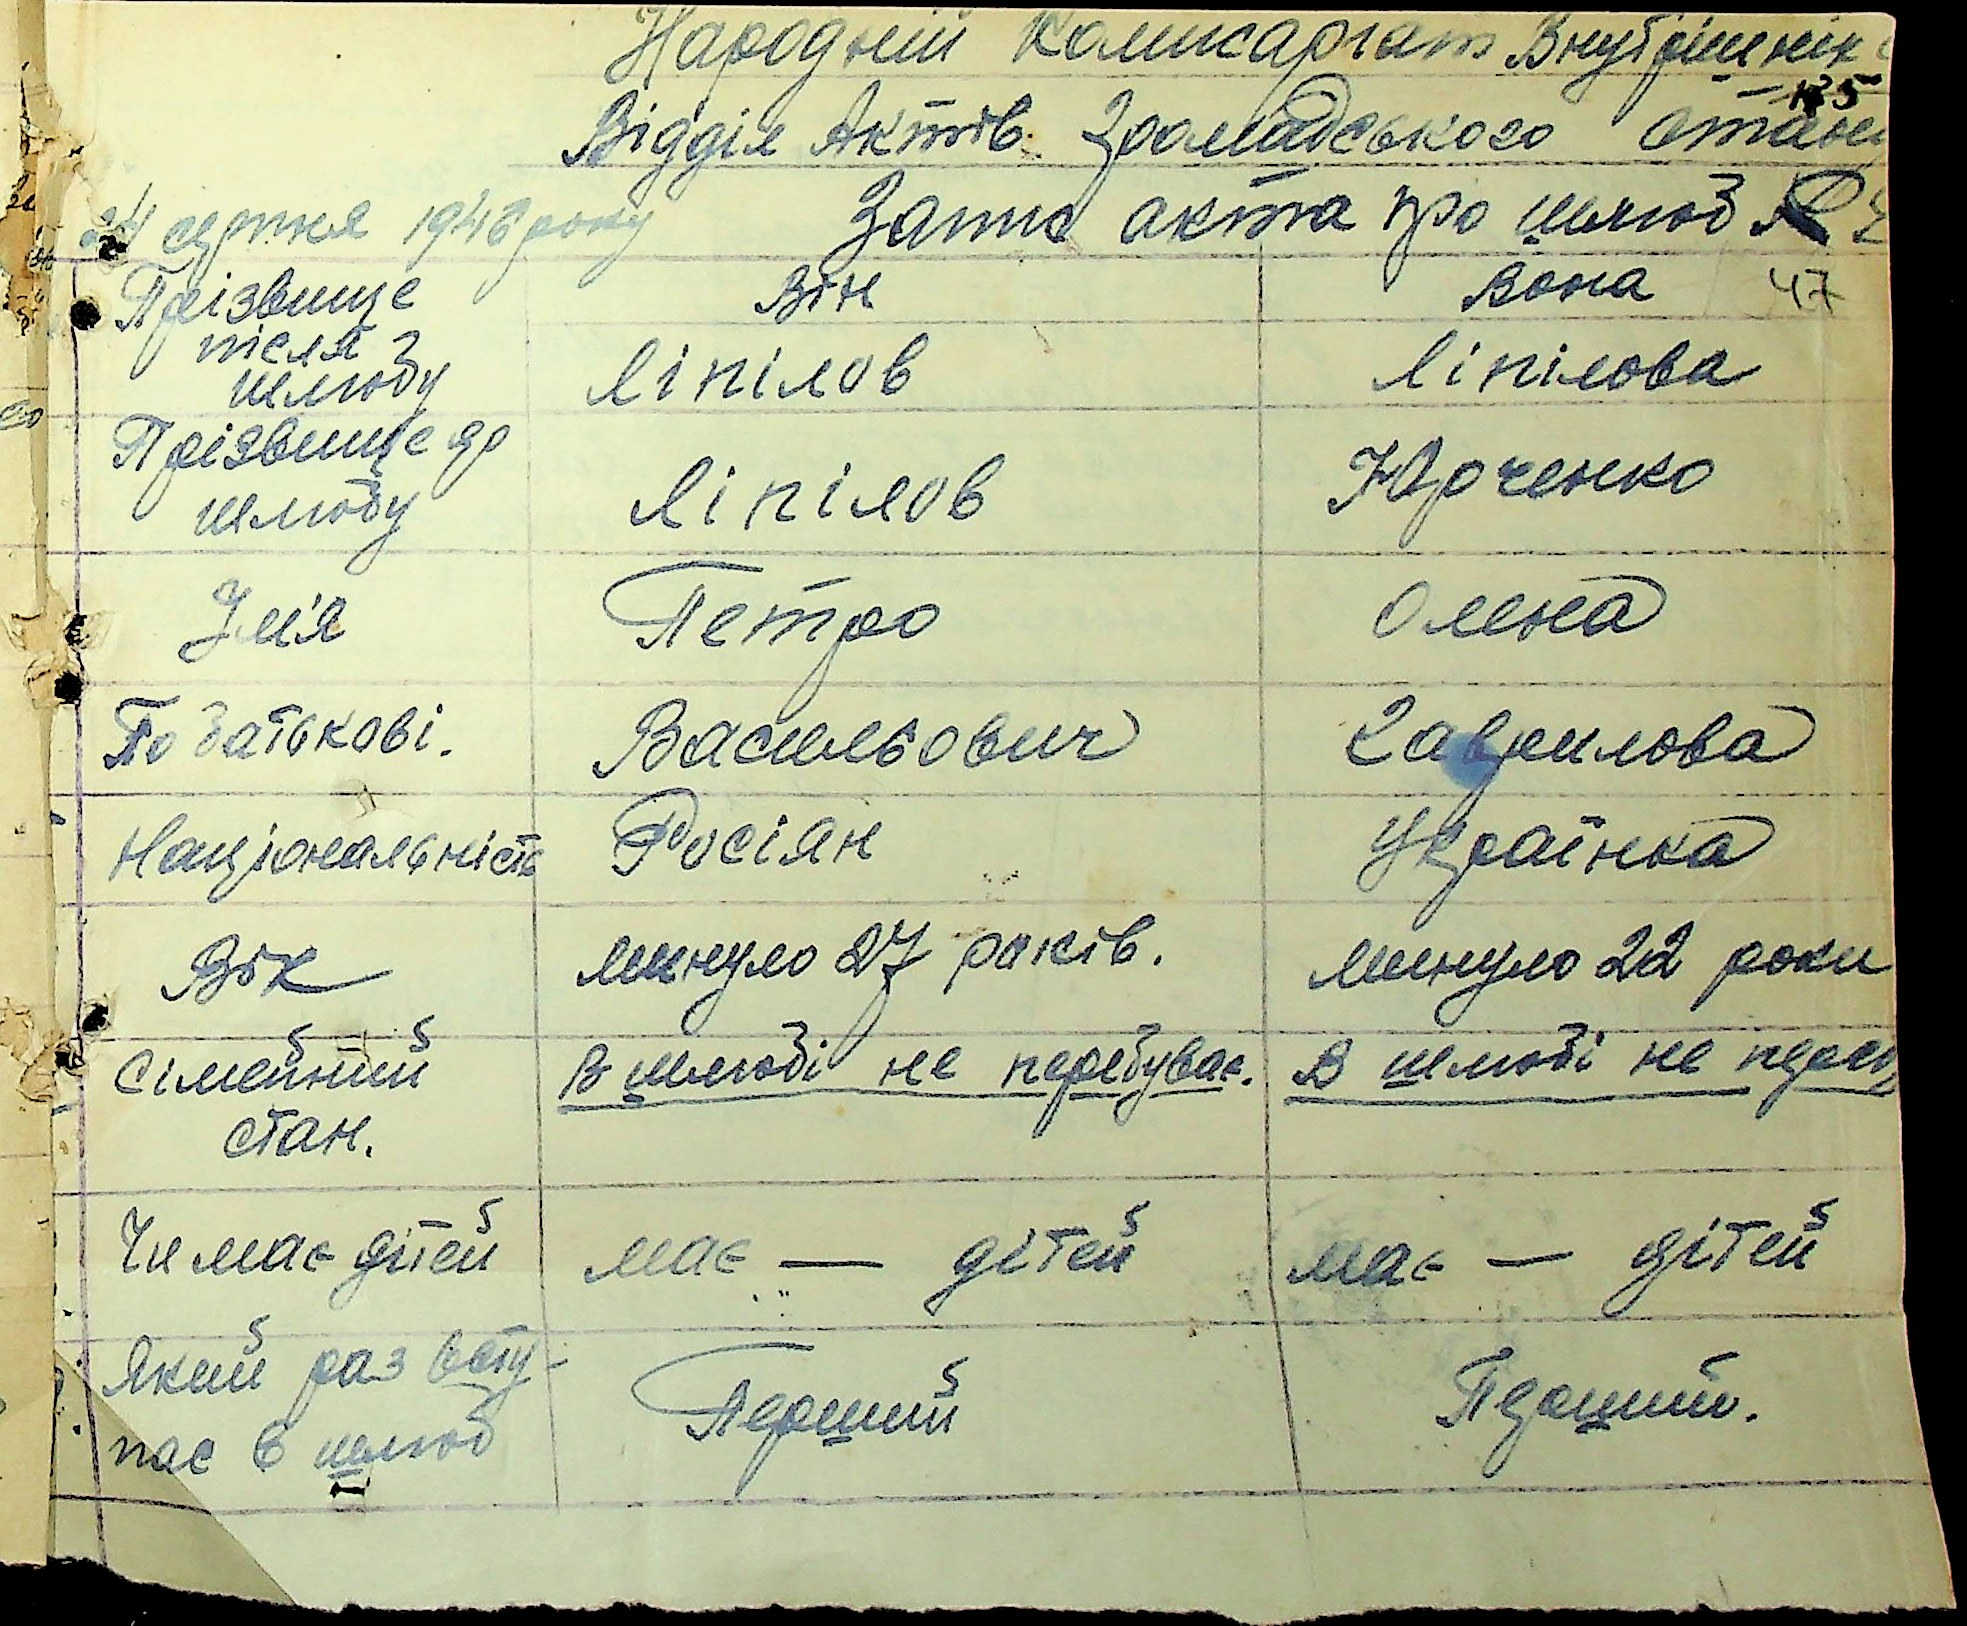 Народній Комисаріат Внутрішніх
135
Відділ Актів Громадського Стану
24 серпня 1946 року Запис акта про шлюб №
Прізвище після шлюбу Він Вона 47
Ліпілов Ліпілова
Прізвище до шлюбу Ліпілов Юрченко
Ім'я Петро Олена
По батькові. Васильович Гаврилова
Національність Росіян Українка
Вік минуло 27 років. минуло 22 роки
Сімейний стан. В шлюбі не перебуває. В шлюбі не переб
Чи має дітей має — дітей має — дітей
Який раз всту-
пає в шлюб Перший Перший.